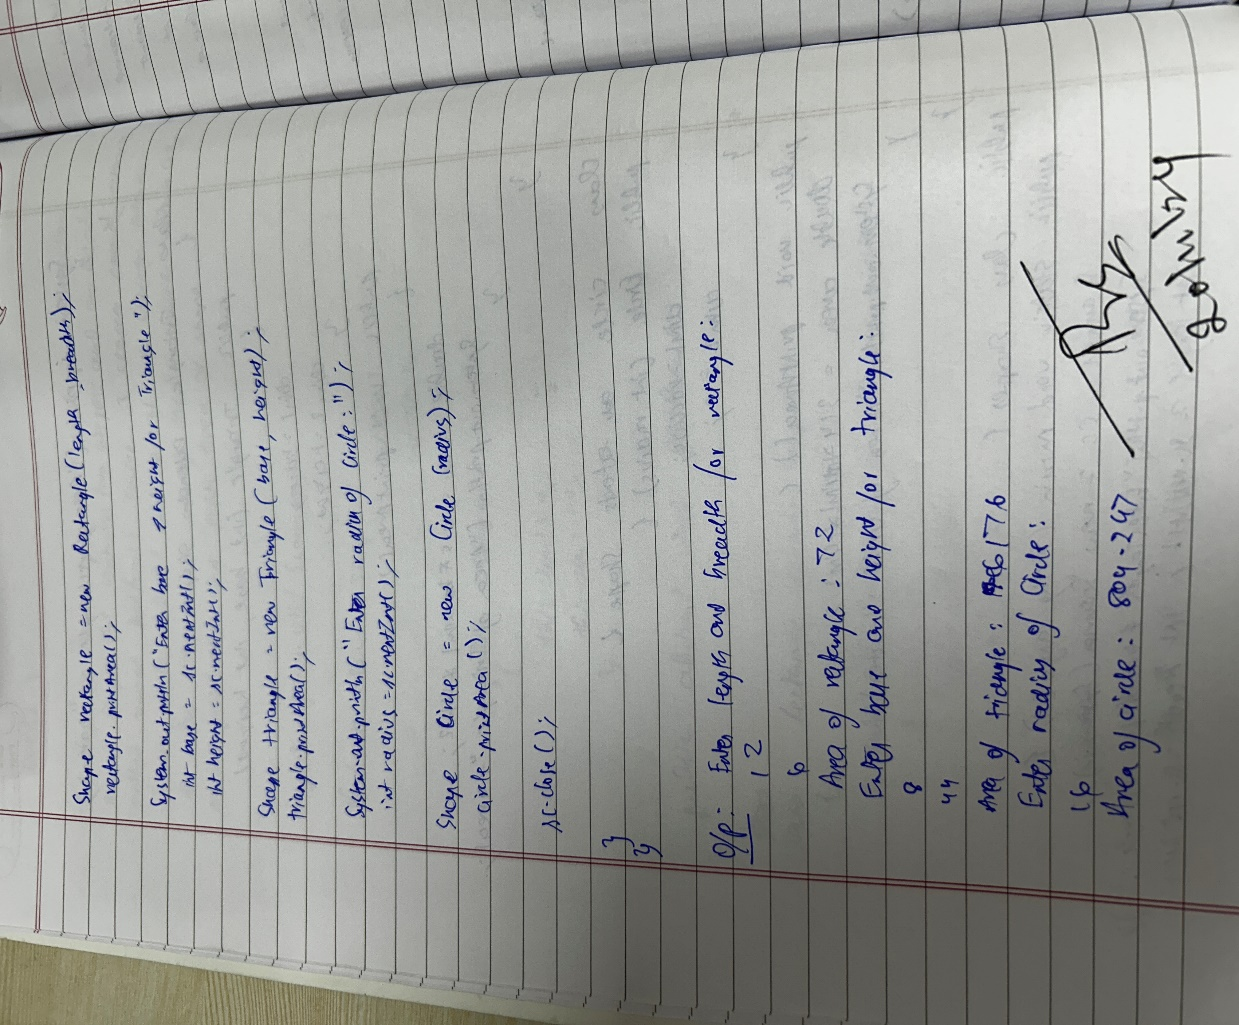 Shape rectangle = new Rectangle (length, breadth);
rectangle.printArea();
System.out.println ("Enter base & height for Triangle");
int base = sc.nextInt();
int height = sc.nextInt();
Shape triangle = new Triangle (base, height);
triangle.printArea();
System.out.println ("Enter radius of Circle:");
int radius = sc.nextInt();
Shape Circle = new Circle (radius);
circle.printArea ();
sc.close();
}
}
O/p:- Enter length and breadth for rectangle:
12
6
Area of rectangle: 72
Enter base and height for triangle:
8
44
Area of triangle: 176
Enter radius of Circle:
16
Area of circle: 804.247